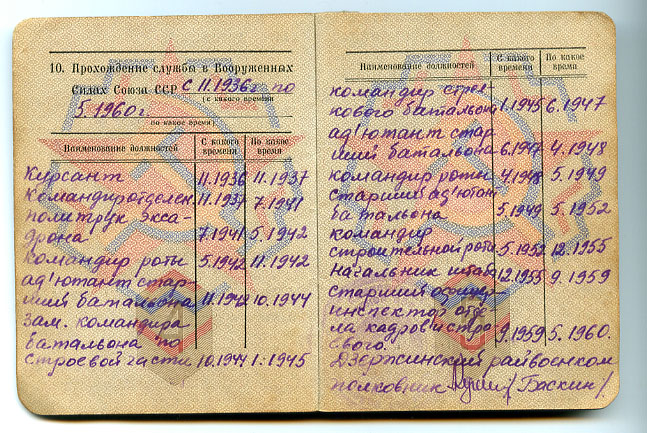 10. Прохождение службы в Вооруженных
Силах Союза ССР с 11.1936г. по
(с какого времени
5.1960г.
по какое время)
Наименование должностей С какого времени По какое время
Курсант 11.1936 11.1937
Командир отделен. 11.1937 7.1941
политрук эска-
дрона 7.1941 5.1942
Командир роты 5.1942 11.1942
ад'ютант стар-
ший батальона 11.1942 10.1944
зам. командира
батальона по
строевой части 10.1944 1.1945
Наименование должностей С какого времени По какое время
командир стрел-
кового батальона 1.1945 6.1947
ад'ютант стар-
ший батальона 6.1947 4.1948
командир роты 4.1948 5.1949
старший ад'ютант
батальона 5.1949 5.1952
командир
строительной роты 5.1952 12.1955
Начальник штаба 12.1955 9.1959
старший офицер-
инспектор отде-
ла кадров и строе-
вого. 9.1959 5.1960.
Дзержинский райвоенком
полковник /Баскин/